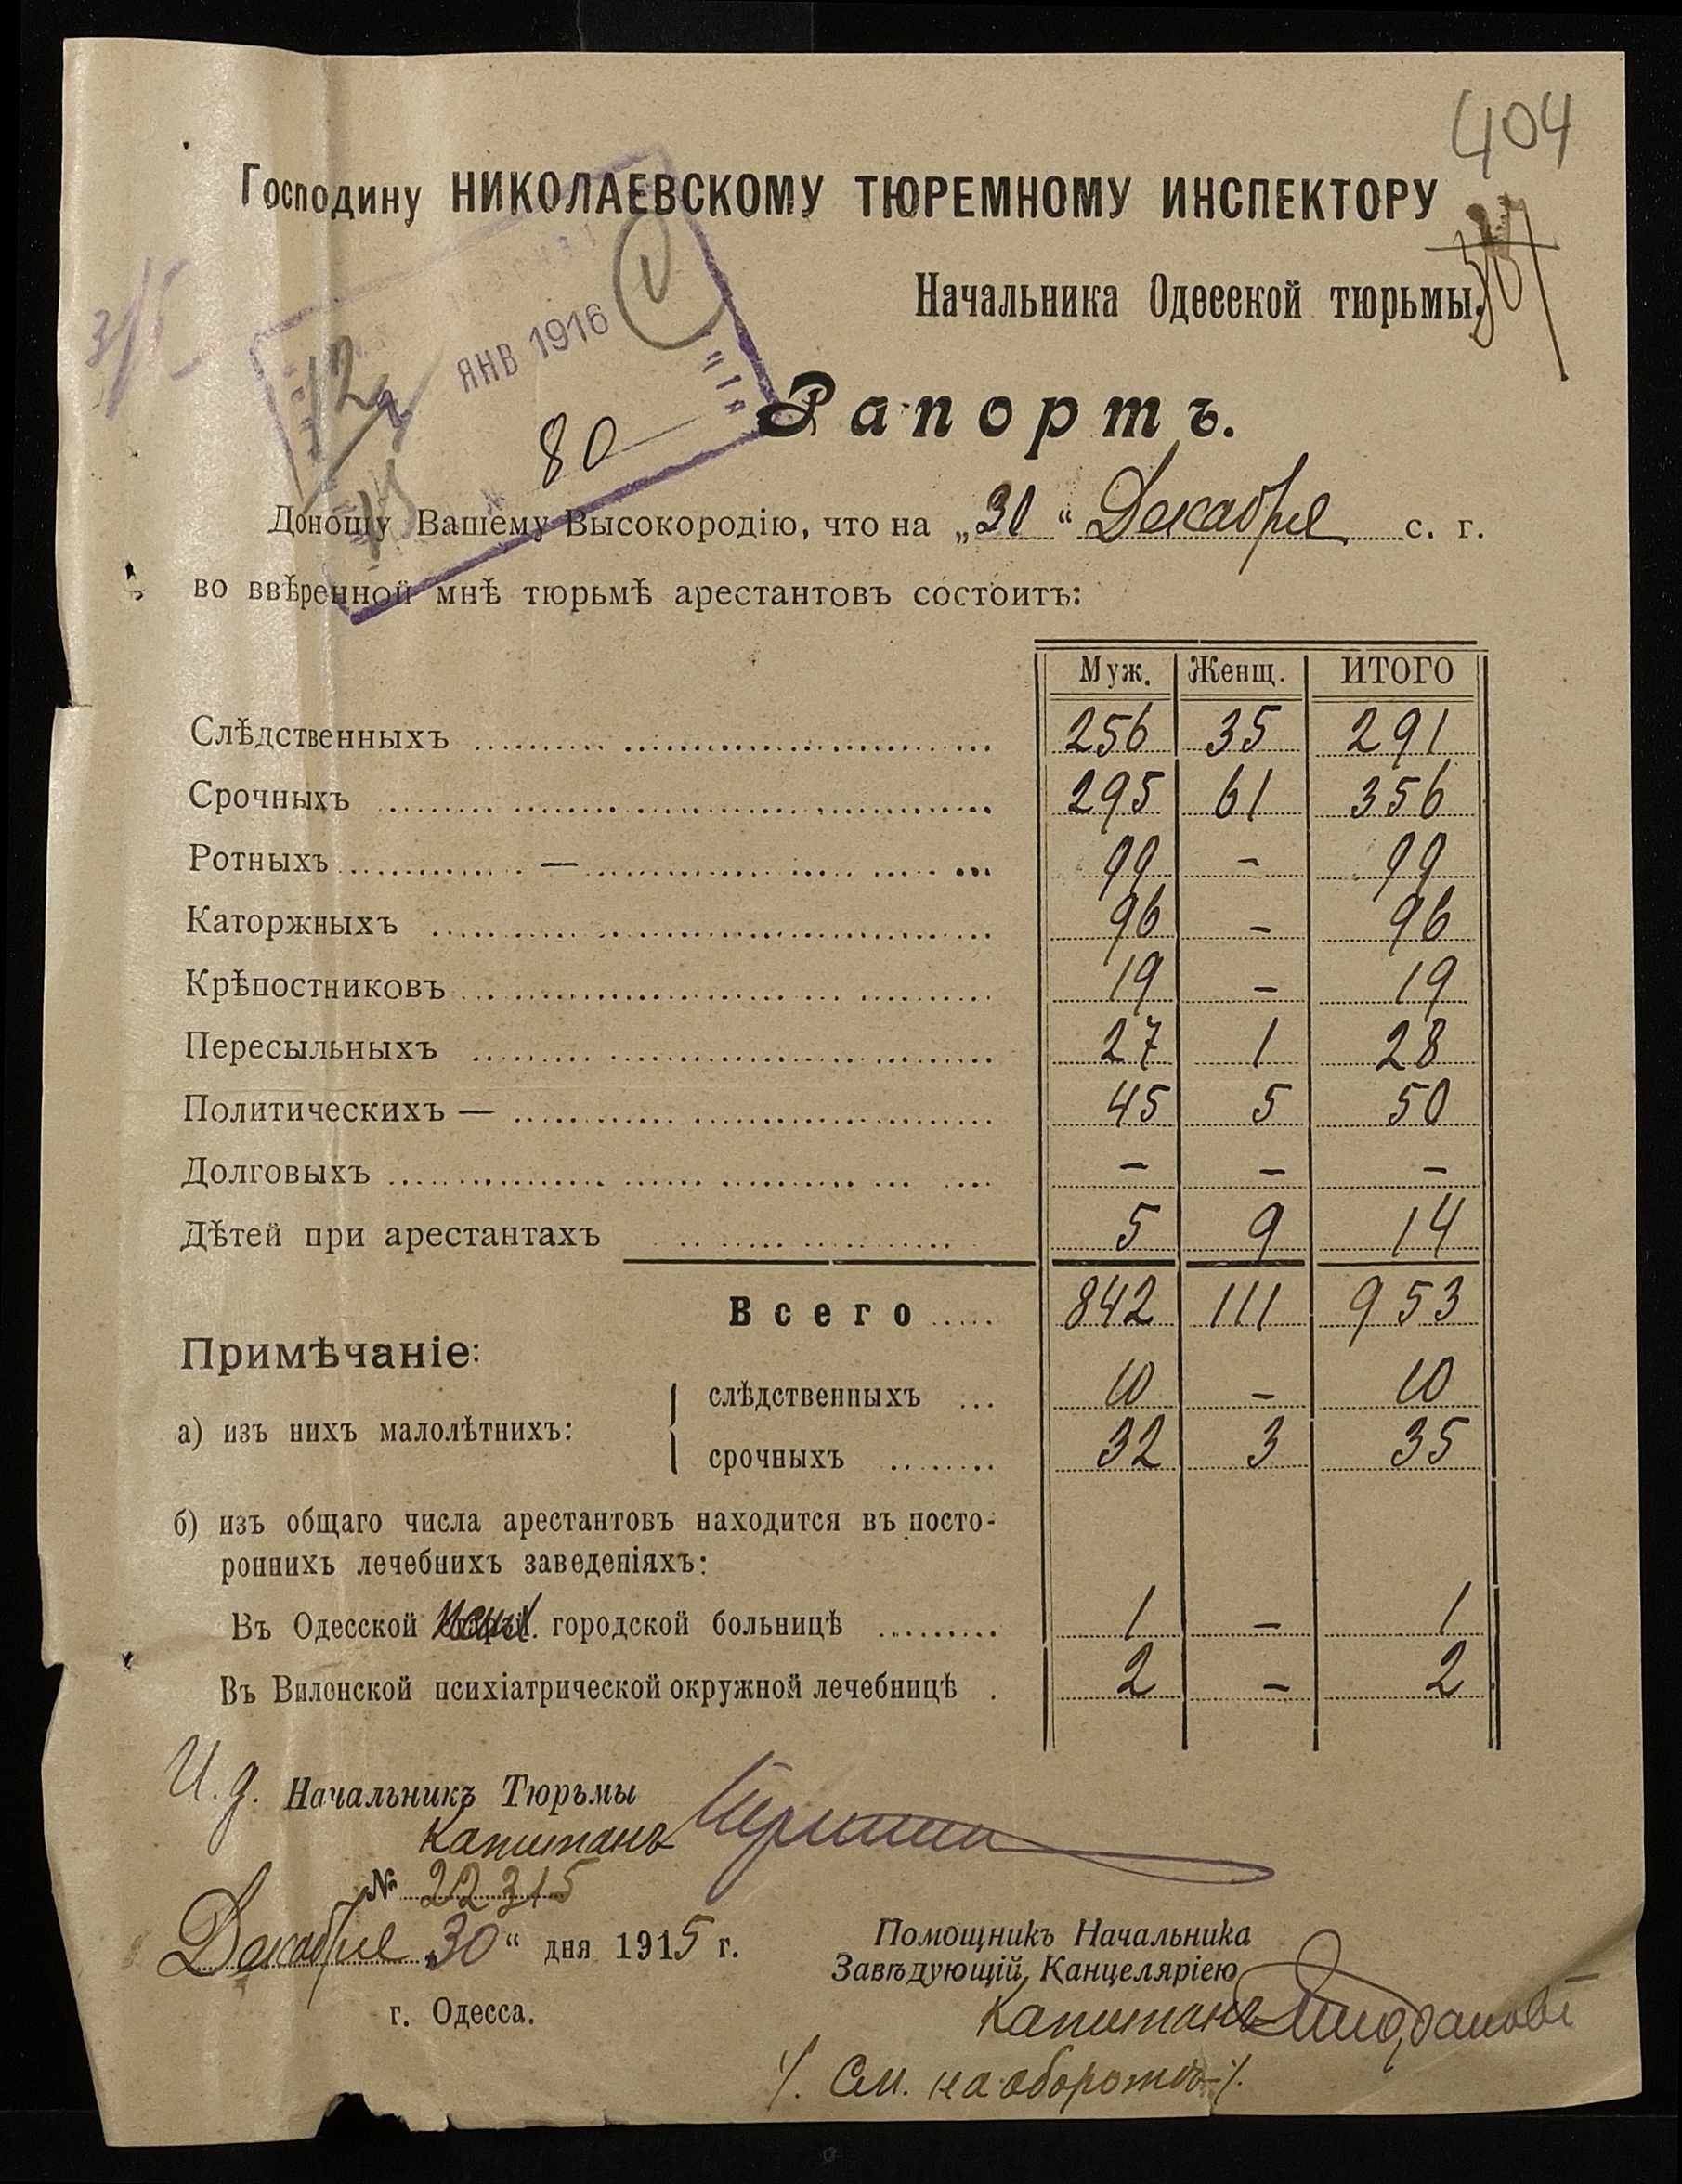 404
Господину НИКОЛАЕВСКОМУ ТЮРЕМНОМУ ИНСПЕКТОРУ
Начальника Одесской тюрьмы.
ЯНВ 1916
80
Рапортъ.
Доношу Вашему Высокородію, что на „30“ Декабря с. г.
во ввѣренной мнѣ тюрьмѣ арестантовъ состоитъ:
Муж. Женщ. ИТОГО
Слѣдственныхъ 256 35 291
Срочныхъ 295 61 356
Ротныхъ — 99 - 99
Каторжныхъ 96 - 96
Крѣпостниковъ 19 - 19
Пересыльныхъ 27 1 28
Политическихъ — 45 5 50
Долговыхъ - - -
Дѣтей при арестантахъ 5 9 14
Всего 842 111 953
Примѣчаніе:
а) изъ нихъ малолѣтнихъ: слѣдственныхъ 10 - 10
срочныхъ 32 3 35
б) изъ общаго числа арестантовъ находится въ посто-
роннихъ лечебнихъ заведеніяхъ:
Въ Одесской городской больницѣ 1 - 1
Въ Вилонской психіатрической окружной лечебницѣ 2 - 2
И. д. Начальникъ Тюрьмы
Капитанъ
№ 22315
Декабря „30“ дня 1915 г.
г. Одесса.
Помощникъ Начальника
Завѣдующій Канцеляріею
Капитанъ
./. См. на оборотѣ ./.